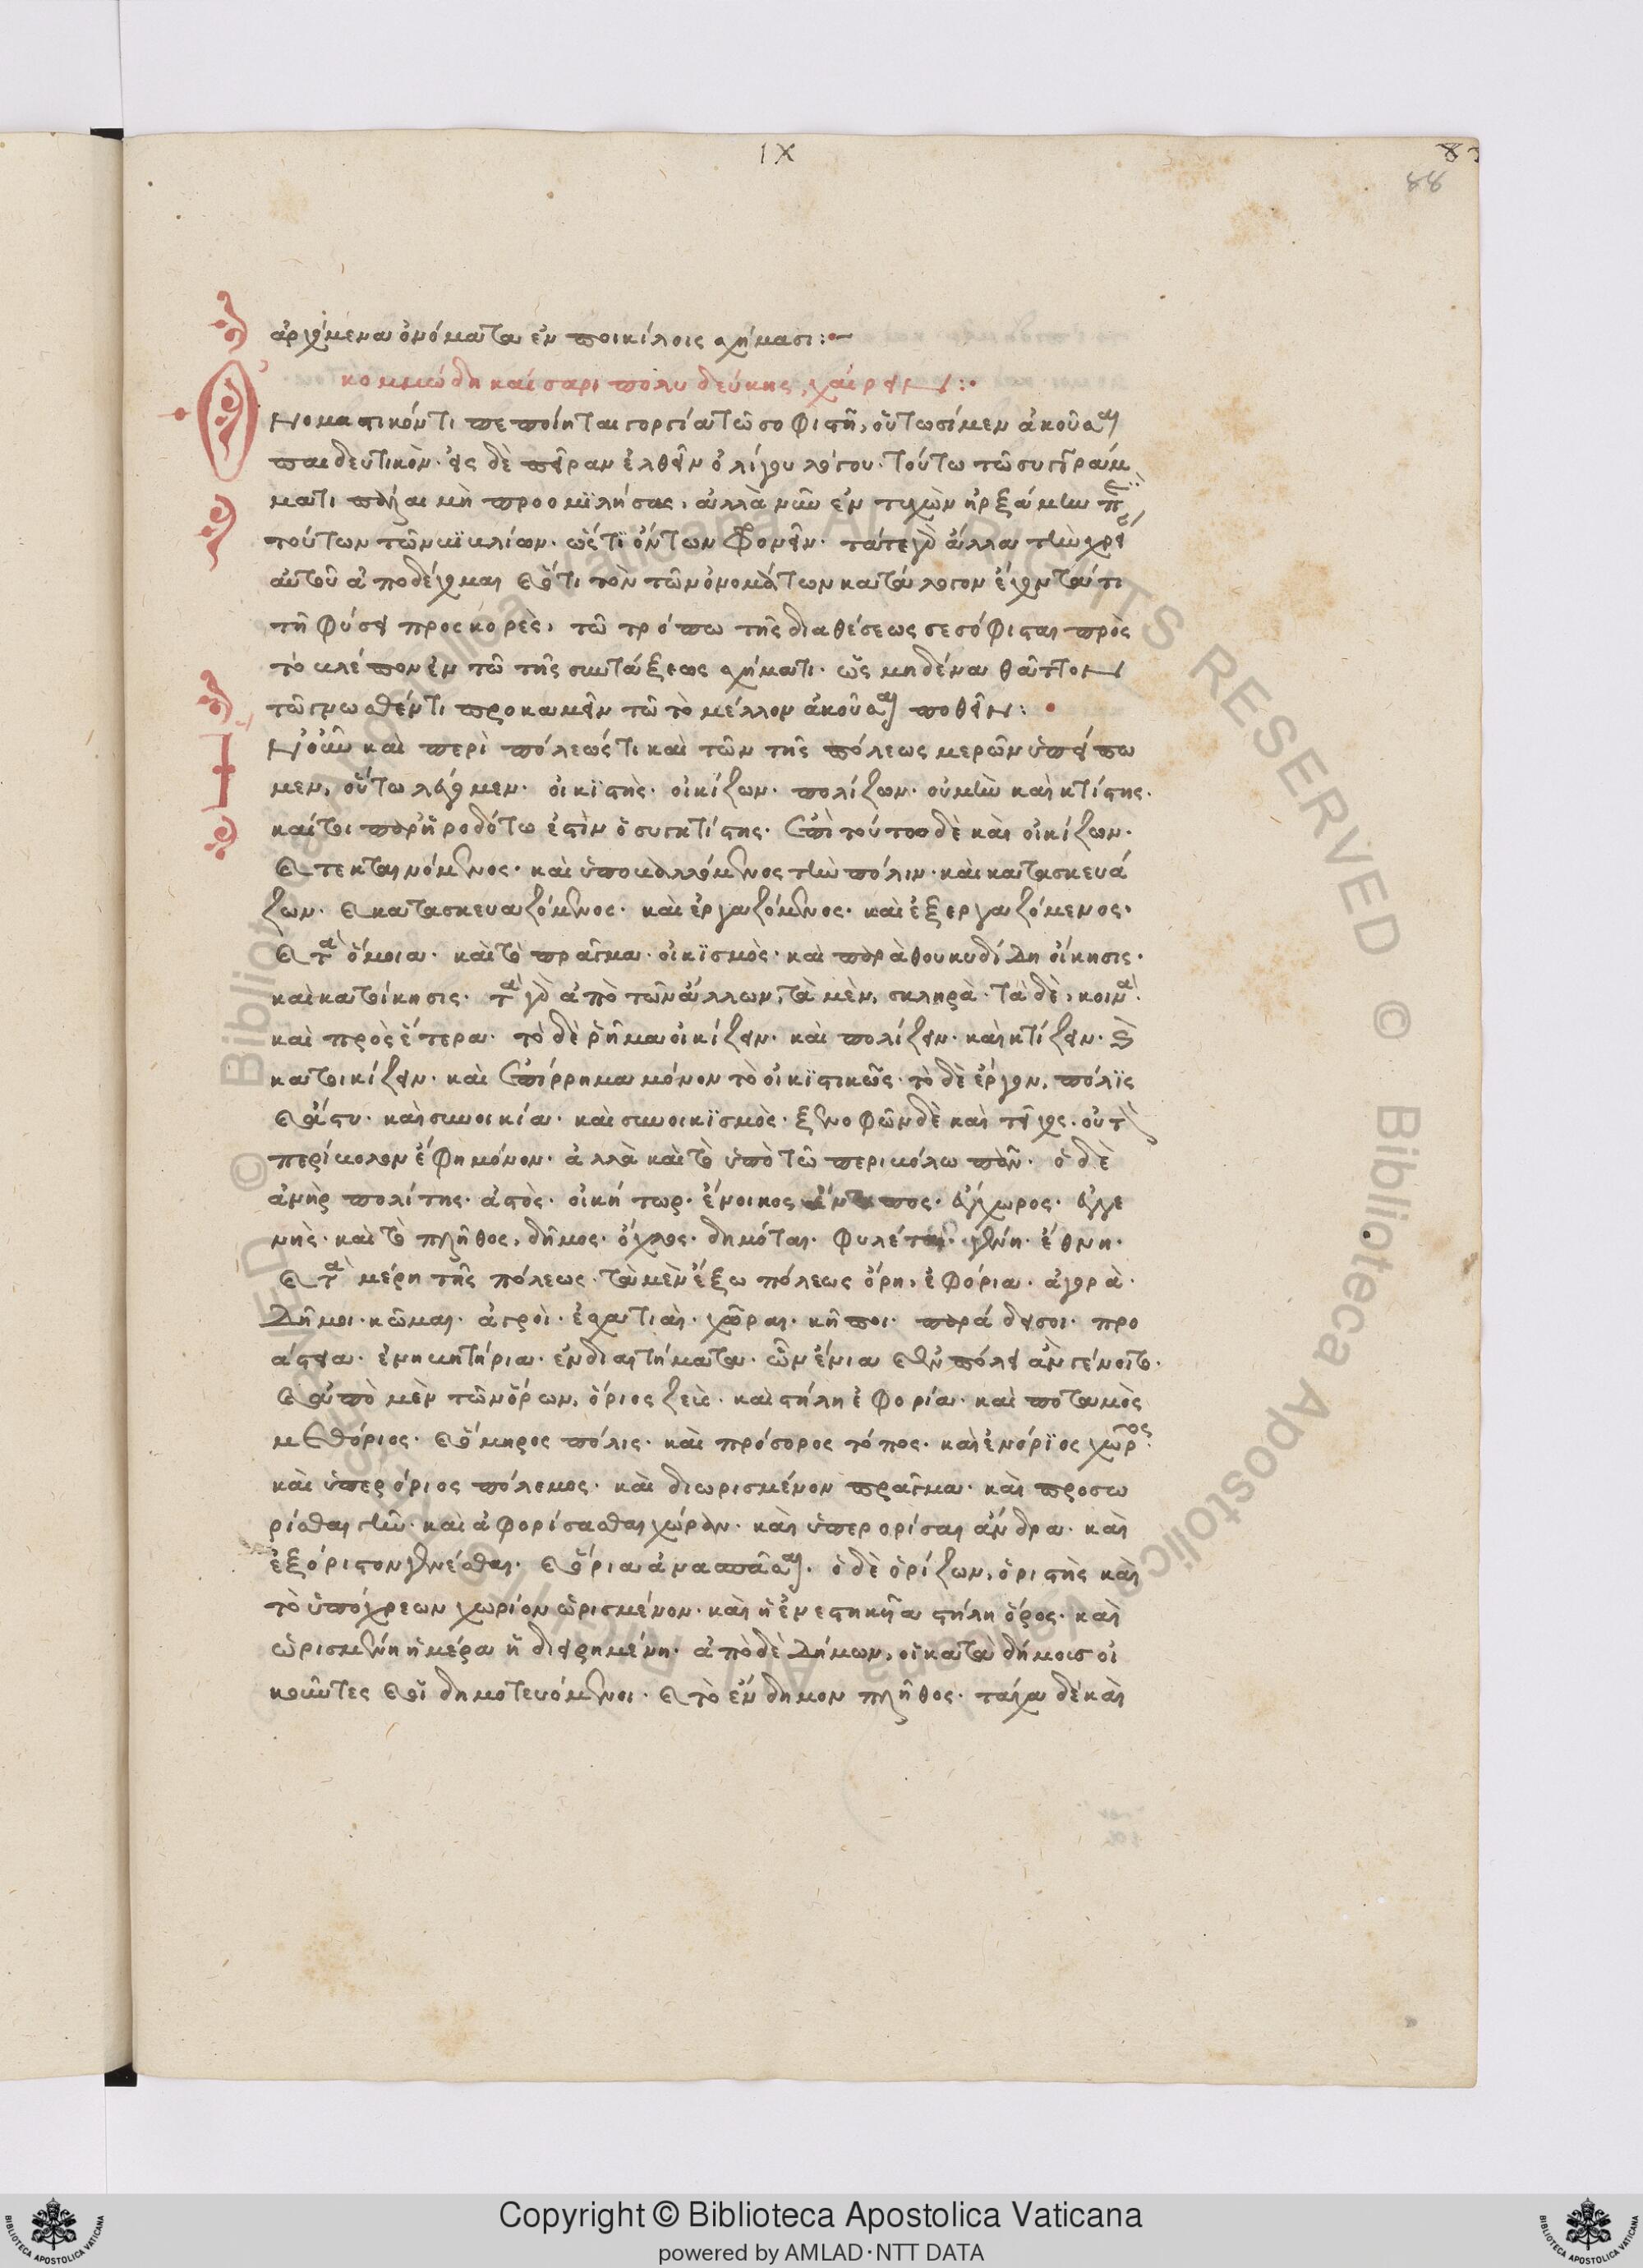 IX
88
ἀρχόμενα ὀνόματα ἐν ποικίλοις σχήμασι:
κομμώδη καίσαρι πολυδεύκης, χαίρειν:
Ὀνομαστικόν τι πεποίηται γοργία τῶ σοφιστῆ, οὑτωσὶ μεν ἀκοῦσαι
παιδευτικὸν· εἰς δὲ πεῖραν ἐλθεῖν ὀλίγου λόγου· τούτω τῶ συγγράμ
ματι πάλαι μὴ προομιλήσας, ἀλλὰ νῦν ἐντυχὼν ἠρξάμην
τούτων τῶν βιβλίων· ὥς τι ὄντων φρονεῖν· τά τε γὰρ ἄλλα τὴν
αὐτοῦ ἀποδέχομαι καὶ ὅτι τὸν τῶν ὀνομάτων κατάλογον ἔχοντά τι
τῆ φύσει προσκορὲς, τῶ τρόπω τῆς διαθέσεως σεσόφισται πρὸς
τὸ βλέπον ἐν τῶ τῆς συντάξεως σχήματι· ὡς μηδένα θᾶττον
τῶ γνωσθέντι προκαμεῖν τῶ τὸ μέλλον ἀκοῦσαι ποθεῖν:
Ἢν οὖν καὶ περὶ πόλεώς τι καὶ τῶν τῆς πόλεως μερῶν ὑπείπω
μεν, οὕτω λέγωμεν· οἰκϊστὴς· οἰκίζων· πολίζων· οὐ μὴν καὶ κτίστης·
καίτοι παρ' ἡροδότω ἐστὶν ὁ συγκτίστης· ἐπὶ τούτου δὲ καὶ οἰκίζων·
καὶ τεκταινόμενος· καὶ ὑποβαλλόμενος τὴν πόλιν· καὶ κατασκευά
ζων· καὶ κατασκευαζόμενος· καὶ ἐργαζόμενος· καὶ ἐξεργαζόμενος·
καὶ τὰ ὅμοια· καὶ τὸ πρᾶγμα· οἰκϊσμὸς· καὶ παρὰ θουκυδίδη οἴκησις·
καὶ κατοίκησις· τὰ γὰρ ἀπὸ τῶν ἄλλων, τὰ μὲν, σκληρὰ· τὰ δὲ, κοινὰ·
καὶ πρὸς ἕτερα· τὸ δὲ ῥῆμα οἰκίζειν· καὶ πολίζειν· καὶ κτίζειν· καὶ
κατοικίζειν· καὶ ἐπίρρημα μόνον τὸ οἰκϊστικῶς· τὸ δὲ ἔργον, πόλϊς
καὶ ἄστυ· καὶ συνοικία· καὶ συνοικϊσμὸς· ξενοφῶν δὲ καὶ τεῖχος· οὐ τὸ
περίβολον ἔφη μόνον· ἀλλὰ καὶ τὸ ὑπὸ τῶ περιβόλω πᾶν· ὁ δὲ
ἀνὴρ πολίτης· ἀστὸς· οἰκήτωρ· ἔνοικος· ἔντοπος· ἐγχωρος· ἐγγε
νὴς· καὶ τὸ πλῆθος, δῆμος· ὄχλος· δημόται· φυλέται· γένη· ἔθνη·
καὶ τὰ μέρη τῆς πόλεως· τὰ μὲν ἔξω πόλεως ὄρη, ἐφόρια· ἀγρὰ·
δῆμοι· κῶμαι· ἀγροὶ· ἐσχατιαὶ· χῶραι· κῆποι· παράδεισοι· προ
άστεια· ἐνηβητήρια· ἐνδιαιτήματα· ὧν ἔνια καὶ ἐν πόλει ἂν γένοιτο·
καὶ ἀπὸ μὲν τῶν ὅρων, ὅριος ζεὺς· καὶ στήλη ἐφορία· καὶ ποταμὸς
μεθόριος· καὶ ὅμηρος πόλις· καὶ πρόσορος τόπος· καὶ ἐνόρϊος χῶρος·
καὶ ὑπερόριος πόλεμος· καὶ διωρισμένον πρᾶγμα· καὶ προσω
ρίσθαι γῆν· καὶ ἀφορίσασθαι χώραν· καὶ ὑπερορίσαι ἄνδρα· καὶ
ἐξόριστον γενέσθαι· καὶ ὅρια ἀνασπᾶσαι· ὁ δὲ ὁρίζων, ὁριστὴς καὶ
τὸ ὑπόχρεων χωρίον ὡρισμένον· καὶ ἡ ἐνεστηκυῖα στήλη ὅρος· καὶ
ὡρισμένη ἡμέρα ἡ διειρημένη· ἀπὸ δὲ δήμων, οἱ κατὰ δήμους οἰ
κοῦντες καὶ οἱ δημοτευόμενοι· καὶ τὸ ἔνδημον πλῆθος· τάχα δὲ καὶ
Copyright © Biblioteca Apostolica Vaticana
powered by AMLAD·NTT DATA